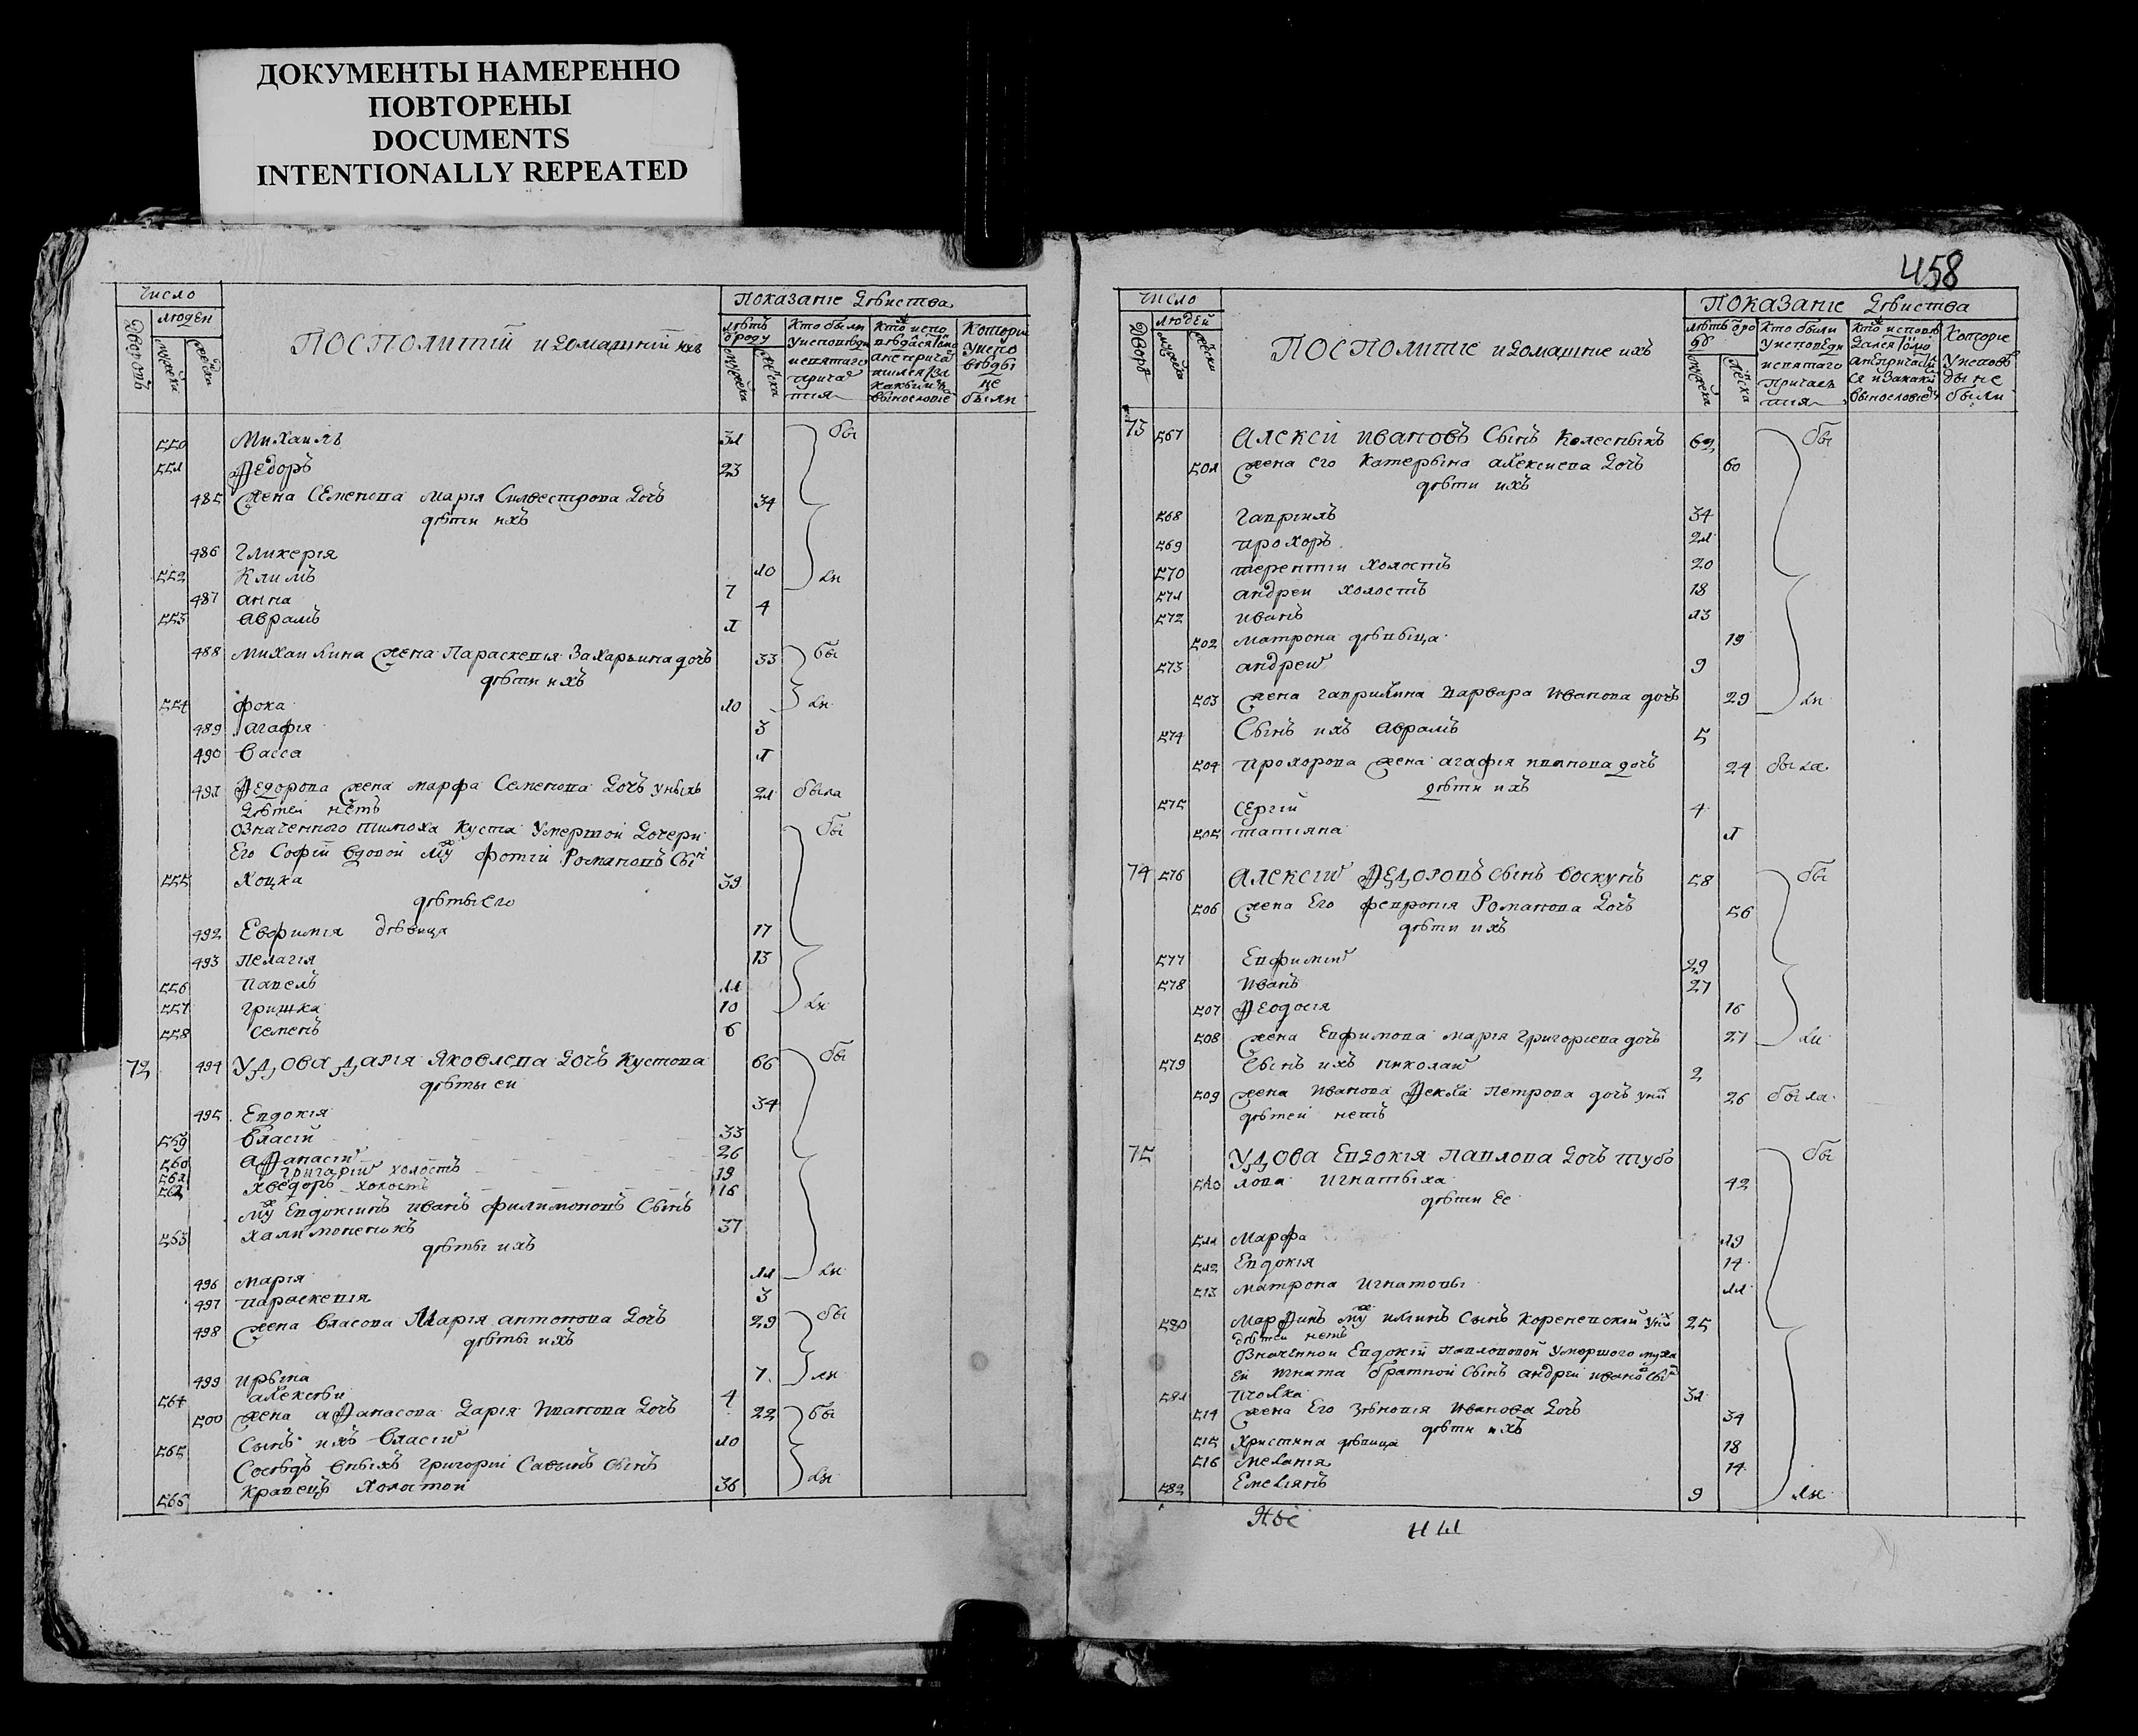 ДОКУМЕНТЫ НАМЕРЕННО
ПОВТОРЕНЫ
DOCUMENTS
INTENTIONALLY REPEATED
Число
людей
Дворовъ
мужеска
женска
Посполитіи и домашніи ихъ
Показаніе действа
летъ
от роду
Кто были
у исповеди
и святаго
прича
стия
Которы
у испо
веды
не
были
550 Михаилъ 31 бы
551 Ѳедоръ 23
485 жена Семенова Марія Силвестрова дочь 34
дѣти ихъ
486 Гликерія 10
552 Климъ 7 ли
487 анна 4
553 Аврамъ 1
488 Михайлина жена Параскевія Захарьина дочъ 33 бы
дѣти ихъ
554 фока 10 ли
489 агафія 3
490 васса 1
491 Ѳедорова жена марфа Семенова дочъ у ныхъ 21 была
дѣтей нетъ
означенного тимоха Куста умершой дочери бы
его Софіи вдовой мужъ фотій Романовъ сынъ
555 Хоцка 39
дѣты его
492 Евфимія дѣвица 17
493 Пелагія 13
556 Павелъ 11
557 гришка 10 ли
558 семенъ 6
72 494 Удова дарія Яковлева дочъ Кустова 66 бы
дѣты еи
495 Евдокія 34
559 власій 33
560 аѲанасій 26
561 григорій холостъ 19
562 хведоръ холостъ 16
мужъ Евдокіинъ иванъ филимоновъ Сынъ
563 халимоненокъ 37
дѣты ихъ
496 марія 11 ли
497 параскевія 3
498 жена власова Марія антонова дочъ 29 бы
дѣты ихъ
499 ирына 7 ли
564 алексѣи 4
500 жена аѲанасова дарія иванова дочъ 22 бы
565 Сынъ ихъ власій 10
Сосѣдъ въныхъ григорій Савинъ сынъ
566 Кравецъ холостой 36 ли
458
Число
людей
Дворовъ
мужеска
женска
Посполитіе и домашніе ихъ
Показаніе действа
Кто были
у исповеди
и святаго
причас
тия
Которіе
у исповѣ
ды не
были
73 567 Алексій ивановъ Сынъ Колесныкъ 62 бы
501 жена его Катерына алексиева дочъ 60
дѣти ихъ
568 гавріилъ 34
569 прохоръ 21
570 терентій холостъ 20
571 андреи холостъ 18
572 иванъ 13
502 матрона дѣвыца 19
573 андрей 9
503 жена гаврилина варвара иванова дочъ 29 ли
574 Сынъ ихъ аврамъ 5
504 прохорова жена агафія иванова дочъ 24 была
дѣти ихъ
575 Сергій 4
505 татіяна 1
74 576 Алексій Ѳедоровъ сынъ воскунъ 58 бы
506 жена Его февронія Романова дочъ 56
дѣти ихъ
577 Евфимій 29
578 Иванъ 27
507 Ѳеодосія 16
508 жена Евфимова марія григоріева дочъ 27 ли
579 сынъ ихъ николай 2
509 жена иванова Ѳекла Петрова дочъ у ний 26 была
дѣтей нетъ
75 Удова Евдокія Павлова дочъ тубо бы
510 лова игнатыха 42
дѣти Ее
511 Марфа 19
512 Евдокія 14
513 матрона игнатовы 11
580 Марфинъ мужъ илинъ Сынъ Кореневскій у ний 25
дѣтей нетъ
Означеннои Евдокіи Павловой умершого мужа
ей игната братной сынъ андрій ивановъ сынъ
581 пчолка 31
514 жена Его зѣновія иванова дочъ 34
дѣти ихъ
515 Христина дѣвица 18
516 меланія 14
582 Емеліянъ 9 ли